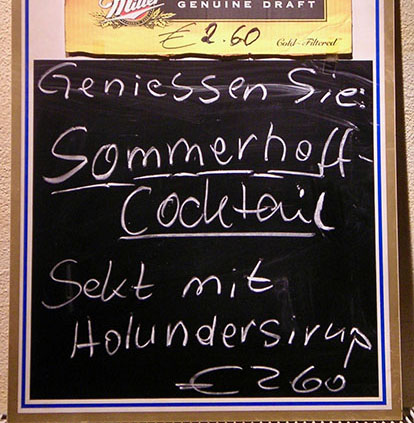 Miller
GENUINE DRAFT
€2.60
Cold-Filtered
Geniessen Sie:
Sommerhoff-
Cocktail
Sekt mit
Holundersirup
€260